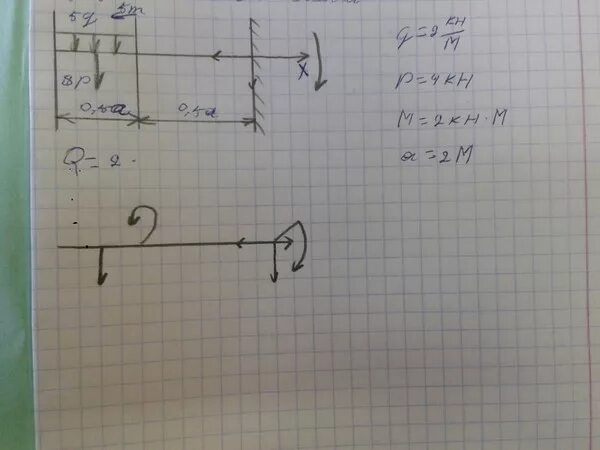 5q 5m
8P
X
0,5a 0,5a
Q = 2
q = 2 кН/м
P = 4 кН
M = 2 кН·м
a = 2 м